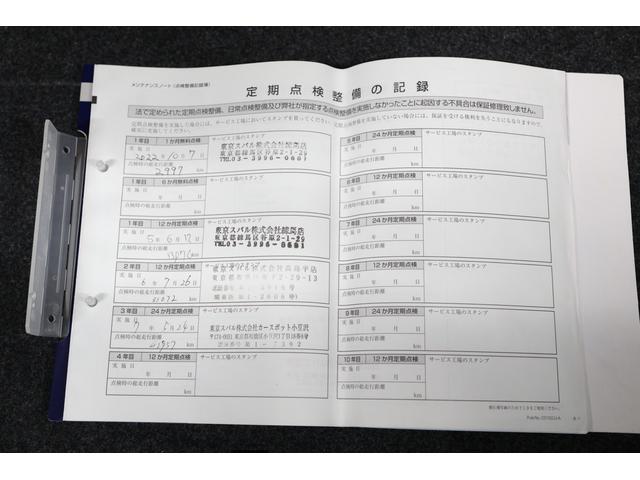 メンテナンスノート（点検整備記録簿）
定期点検整備の記録
法で定められた定期点検整備、日常点検整備及び弊社が指定する点検整備を実施しなかったことに起因する不具合は保証修理致しません。
1年目 1か月無料点検 サービス工場のスタンプ
実施日
2022年10月7日
点検時の総走行距離
2997 km
東京スバル株式会社練馬店
東京都練馬区谷原2-1-29
TEL03-3996-0661
1年目 6か月無料点検 サービス工場のスタンプ
実施日
年 月 日
点検時の総走行距離
km
1年目 12か月定期点検 サービス工場のスタンプ
実施日
5年6月17日
点検時の総走行距離
km
東京スバル株式会社練馬店
東京都練馬区谷原2-1-29
TEL03-3996-0661
2年目 12か月定期点検 サービス工場のスタンプ
実施日
6年7月26日
点検時の総走行距離
km
東京スバル株式会社高島平店
3年目 24か月定期点検 サービス工場のスタンプ
実施日
7年5月24日
点検時の総走行距離
km
東京スバル株式会社カースポット小豆沢
4年目 12か月定期点検 サービス工場のスタンプ
実施日
年 月 日
点検時の総走行距離
km
5年目 24か月定期点検 サービス工場のスタンプ
実施日
年 月 日
点検時の総走行距離
km
6年目 12か月定期点検 サービス工場のスタンプ
実施日
年 月 日
点検時の総走行距離
km
7年目 24か月定期点検 サービス工場のスタンプ
実施日
年 月 日
点検時の総走行距離
km
8年目 12か月定期点検 サービス工場のスタンプ
実施日
年 月 日
点検時の総走行距離
km
9年目 24か月定期点検 サービス工場のスタンプ
実施日
年 月 日
点検時の総走行距離
km
10年目 12か月定期点検 サービス工場のスタンプ
実施日
年 月 日
点検時の総走行距離
km